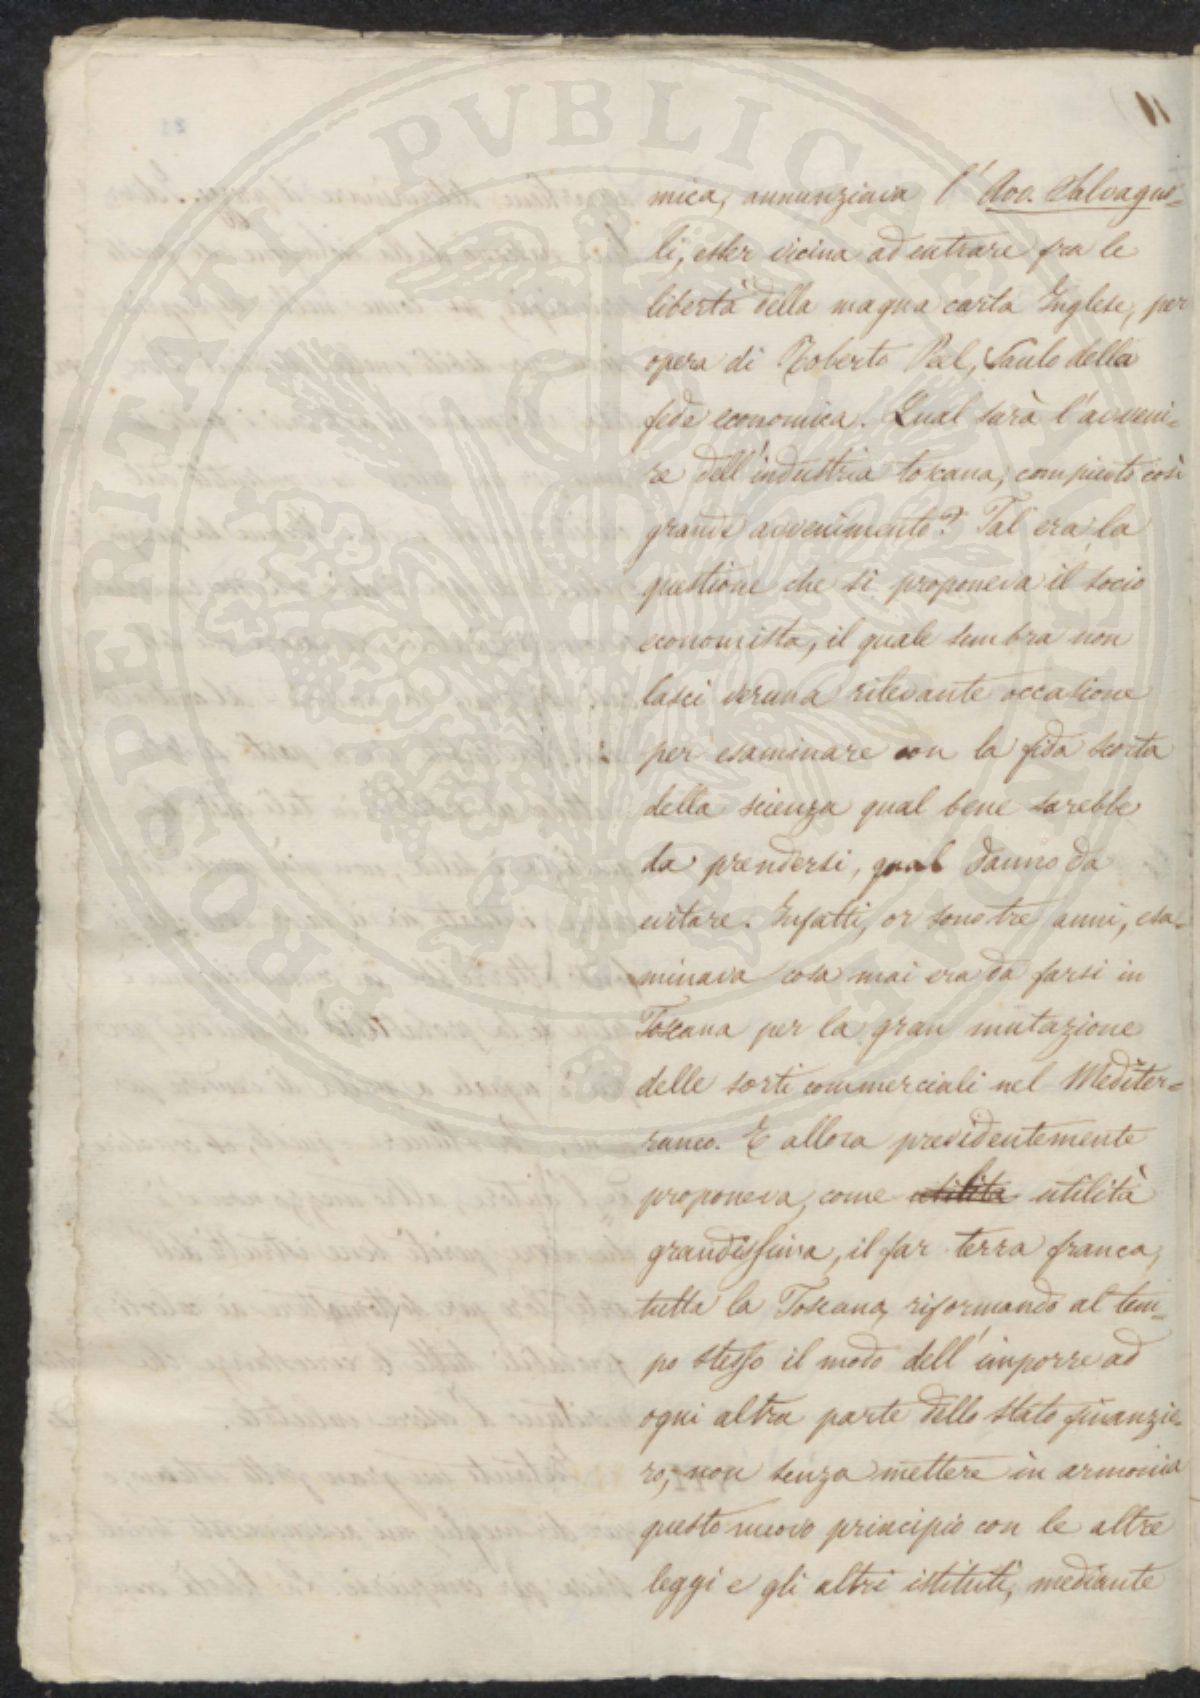 PROSPERITATI PUBLICAE AUGENDAE
mica, annunziava l'Avv. Salvagno-
li, esser vicina ad entrare fra le
libertà della magna carta Inglese, per
opera di Roberto Peel, Saulo della
fede economica. Qual sarà l'avveni-
re dell'industria toscana, compiuto così
grande avvenimento? Tal era la
questione che si proponeva il socio
economista, il quale sembra non
lasci veruna rilevante occasione
per esaminare con la fida scorta
della scienza qual bene sarebbe
da prendersi, qual danno da
evitare. Infatti, or sono tre anni, esa-
minava cosa mai era da farsi in
Toscana per la gran mutazione
delle sorti commerciali nel Mediter-
raneo. E allora previdentemente
proponeva, come utilità utilità
grandissima, il far terra franca,
tutta la Toscana, riformando al tem-
po stesso il modo dell'imporre ad
ogni altra parte dello stato finanzie-
ro, non senza mettere in armonia
questo nuovo principio con le altre
leggi e gli altri istituti, mediante